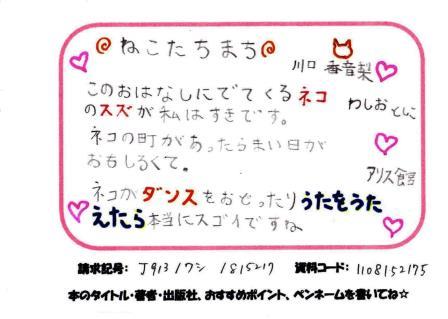 ねこたちまち
川口 香音梨
このおはなしにでてくるネコ
のスズが私はすきです。
わしお としこ
ネコの町があったらまい日が
おもしろくて。
アリス館
ネコがダンスをおどったりうたをうた
えたら本当にスゴイですね
請求記号: J913/ワシ/815217 資料コード: 1108152175
本のタイトル・著者・出版社、おすすめポイント、ペンネームを書いてね☆